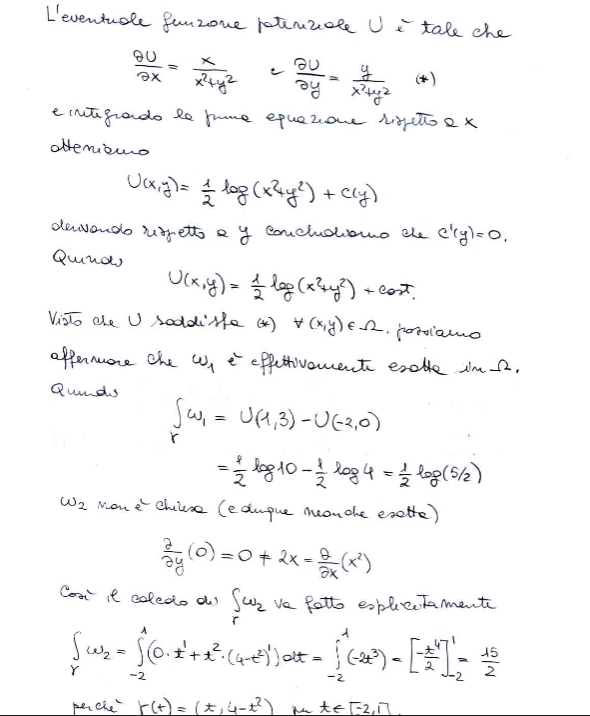 L'eventuale funzione potenziale U è tale che
∂U/∂x = x/(x²+y²) e ∂U/∂y = y/(x²+y²) (*)
e integrando la prima equazione rispetto a x
otteniamo
U(x,y) = 1/2 log(x²+y²) + c(y)
derivando rispetto a y concludiamo che c'(y)=0.
Quindi
U(x,y) = 1/2 log(x²+y²) + cost.
Visto che U soddisfa (*) ∀ (x,y) ∈ Ω. possiamo
affermare che ω₁ è effettivamente esatta in Ω.
Quindi
∫_γ ω₁ = U(1,3) - U(-2,0)
= 1/2 log 10 - 1/2 log 4 = 1/2 log(5/2)
ω₂ non è chiusa (e dunque neanche esatta)
∂/∂y (0) = 0 ≠ 2x = ∂/∂x (x²)
Così il calcolo di ∫_γ ω₂ va fatto esplicitamente
∫_γ ω₂ = ∫_{-2}^{1} (0·t' + t²·(4-t²)') dt = ∫_{-2}^{1} (-2t³) = [-t⁴/2]_{-2}^{1} = 15/2
perchè γ(t) = (t, 4-t²) per t ∈ [-2,1].